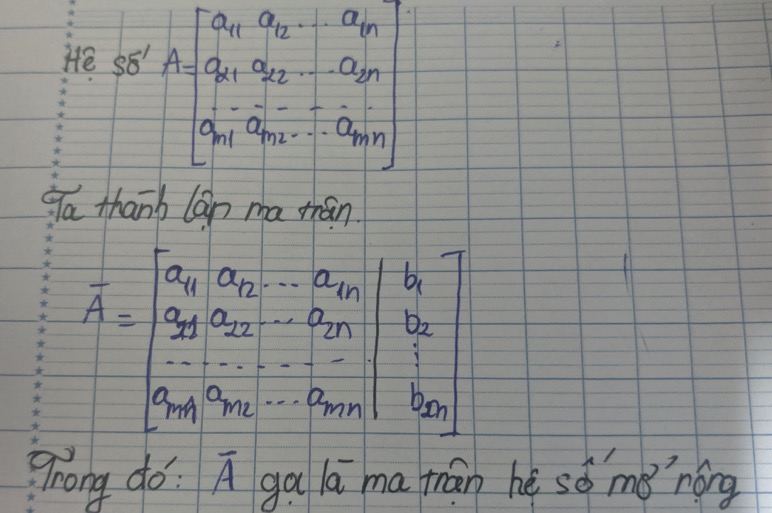 Hệ số A = [a11 a12 ... a1n
a21 a22 ... a2n
- - - - - - -
am1 am2 ... amn]
Ta thành lập ma trận.
Ā = [a11 a12 ... a1n | b1
a21 a22 ... a2n | b2
- - - - - - - - | ⋮
am1 am2 ... amn | bm]
Trong đó: Ā gọi là ma trận hệ số mở rộng